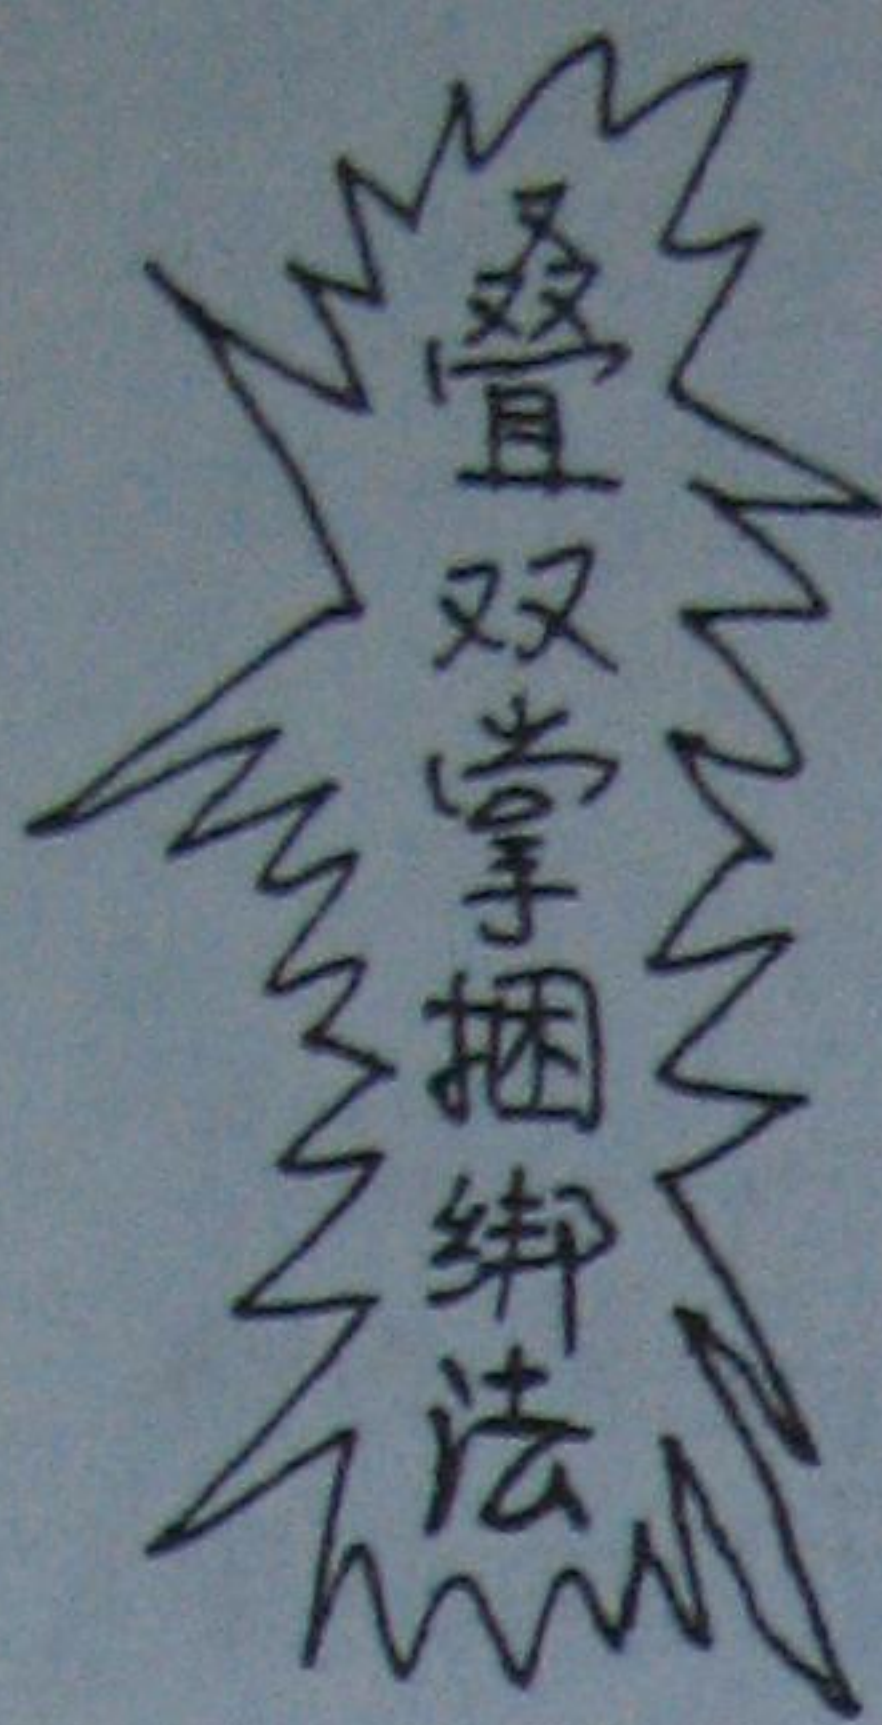 叠双掌捆绑法